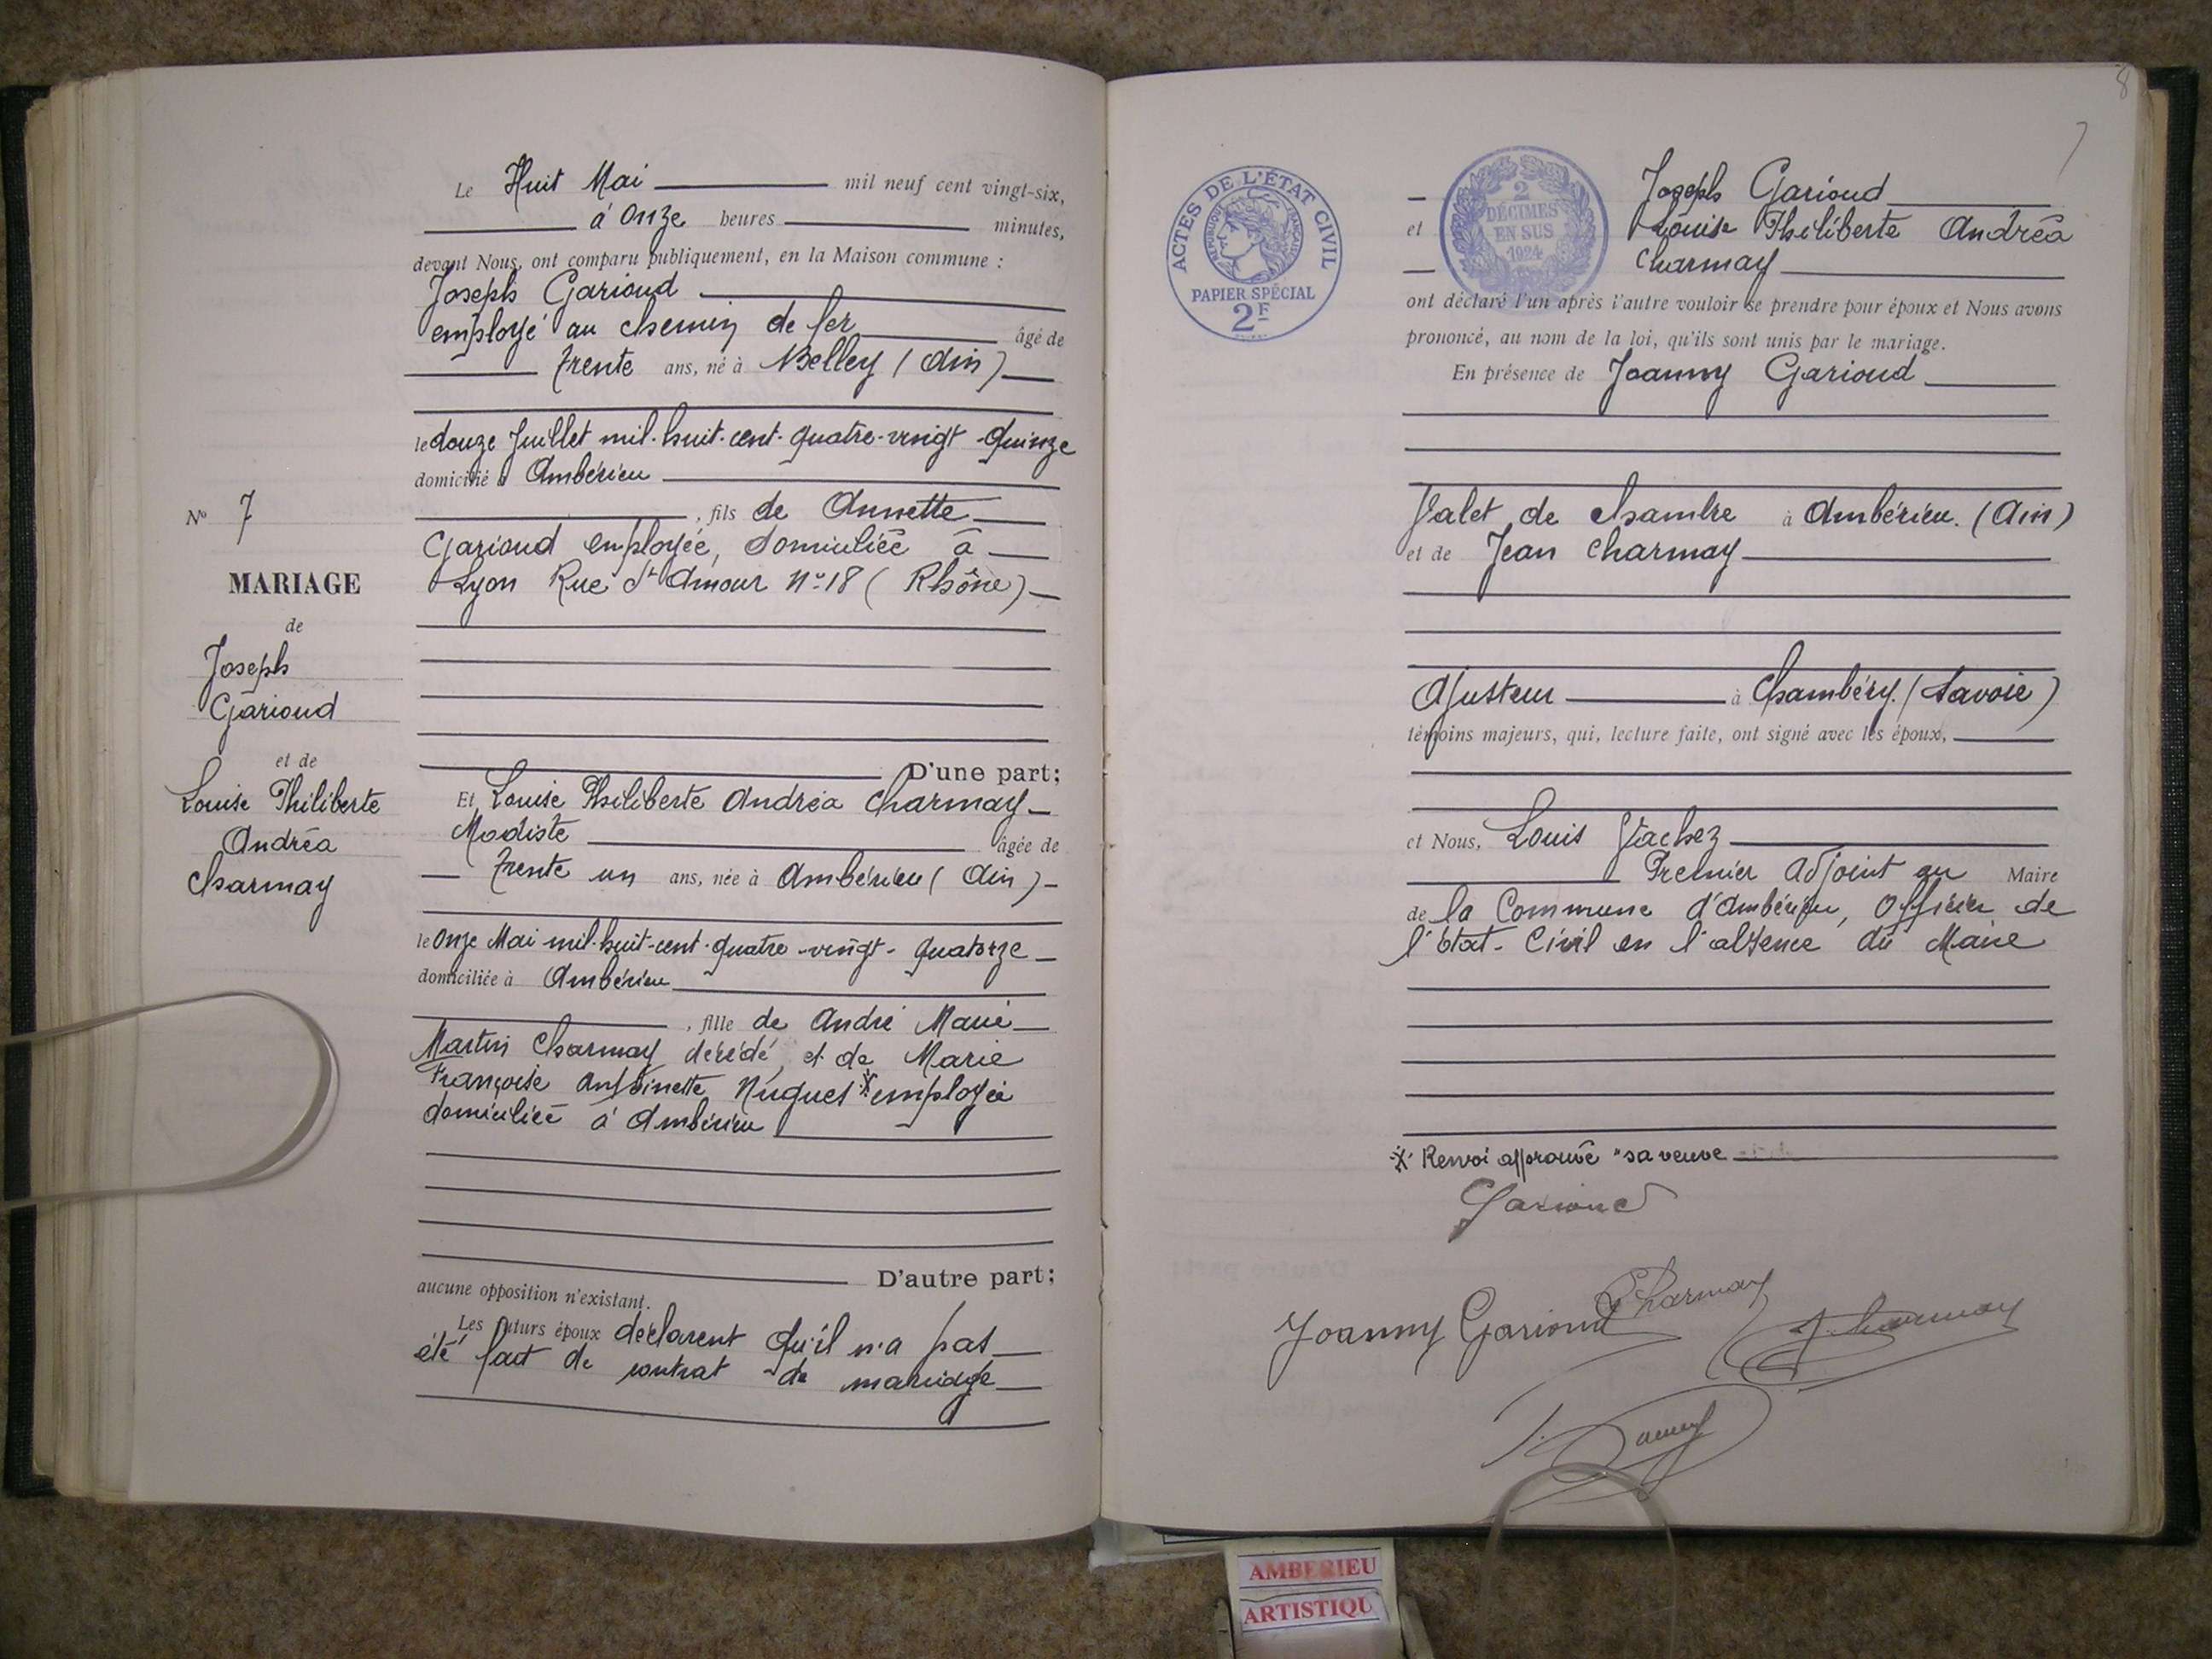 Le Huit Mai mil neuf cent vingt-six,
à Onze heures minutes,
devant Nous, ont comparu publiquement, en la Maison commune :
Joseph Garioud
employé au chemin de fer âgé de
trente ans, né à Belley (Ain)
le douze Juillet mil-huit-cent-quatre-vingt-quinze
domicilié à Ambérieu
, fils de Annette
Garioud employée, domiciliée à
Lyon Rue St Amour N° 18 (Rhône)
D'une part;
Nº 7
MARIAGE
de
Joseph
Garioud
et de
Louise Philiberte
Andréa
Charmay
Et Louise Philiberte Andréa Charmay
Modiste âgée de
trente un ans, née à Ambérieu (Ain)
le onze Mai mil-huit-cent-quatre-vingt-quatorze
domiciliée à Ambérieu
, fille de André Marie
Martin Charmay décédé, et de Marie
Françoise Antoinette Nuguet * employée
domiciliée à Ambérieu
D'autre part;
aucune opposition n'existant.
Les futurs époux déclarent qu'il n'a pas
été fait de contrat de mariage
8
7
ACTES DE L'ÉTAT CIVIL
RÉPUBLIQUE FRANÇAISE
PAPIER SPÉCIAL
2F
2
DÉCIMES
EN SUS
1924
Joseph Garioud
et Louise Philiberte Andréa
Charmay
ont déclaré l'un après l'autre vouloir se prendre pour époux et Nous avons
prononcé, au nom de la loi, qu'ils sont unis par le mariage.
En présence de Joanny Garioud
Valet de chambre à Ambérieu. (Ain)
et de Jean Charmay
Ajusteur à Chambéry. (Savoie)
témoins majeurs, qui, lecture faite, ont signé avec les époux,
et Nous, Louis Vachez
Premier adjoint au Maire
de la Commune d'Ambérieu, Officier de
l'état-Civil en l'absence du Maire
* Renvoi approuvé "sa veuve
Garioud
Charmay
Joanny Garioud
J. Charmay
AMBERIEU
ARTISTIQU